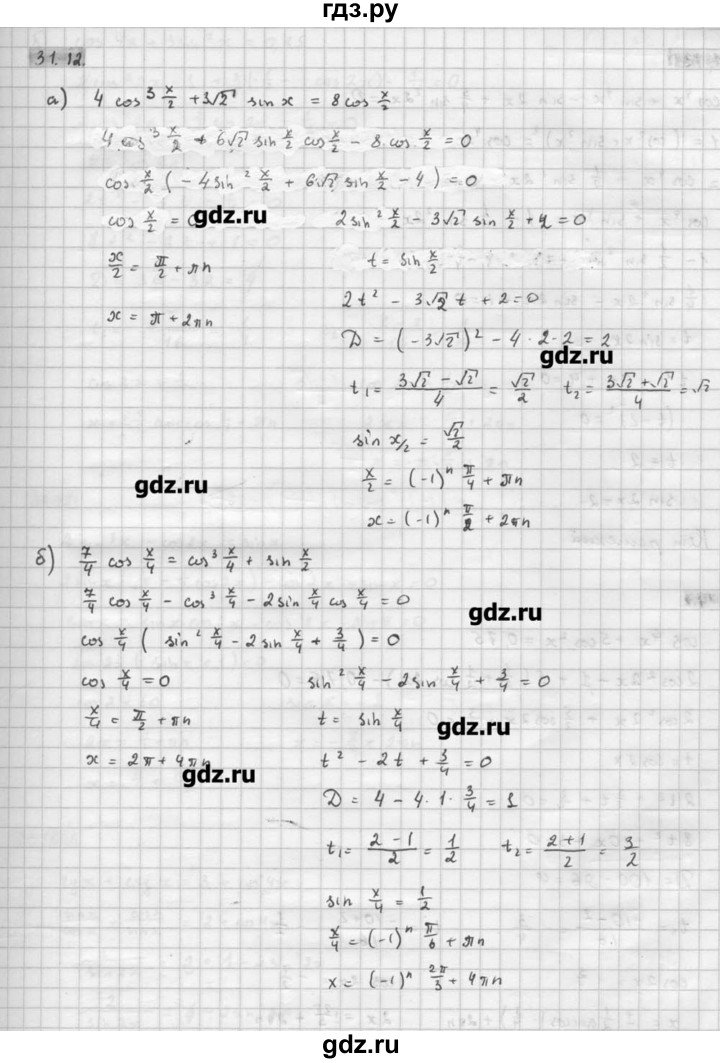 гдз.ру
31.12.
а) 4 cos³ x/2 + 3√2 sin x = 8 cos x/2
4 cos³ x/2 + 6√2 sin x/2 cos x/2 − 8 cos x/2 = 0
cos x/2 ( − 4 sin² x/2 + 6√2 sin x/2 − 4 ) = 0
cos x/2 = 0 2 sin² x/2 − 3√2 sin x/2 + 2 = 0
gdz.ru
x/2 = π/2 + πn t = sin x/2
x = π + 2πn 2t² − 3√2 t + 2 = 0
D = (−3√2)² − 4 · 2 · 2 = 2
gdz.ru
t₁ = (3√2 − √2)/4 = √2/2 t₂ = (3√2 + √2)/4 = √2
sin x/2 = √2/2
gdz.ru
x/2 = (−1)ⁿ π/4 + πn
x = (−1)ⁿ π/2 + 2πn
б) 7/4 cos x/4 = cos³ x/4 + sin x/2
7/4 cos x/4 − cos³ x/4 − 2 sin x/4 cos x/4 = 0
gdz.ru
cos x/4 ( sin² x/4 − 2 sin x/4 + 3/4 ) = 0
cos x/4 = 0 sin² x/4 − 2 sin x/4 + 3/4 = 0
x/4 = π/2 + πn t = sin x/4
gdz.ru
x = 2π + 4πn t² − 2t + 3/4 = 0
gdz.ru
D = 4 − 4 · 1 · 3/4 = 1
t₁ = (2 − 1)/2 = 1/2 t₂ = (2 + 1)/2 = 3/2
sin x/4 = 1/2
x/4 = (−1)ⁿ π/6 + πn
x = (−1)ⁿ 2π/3 + 4πn
gdz.ru